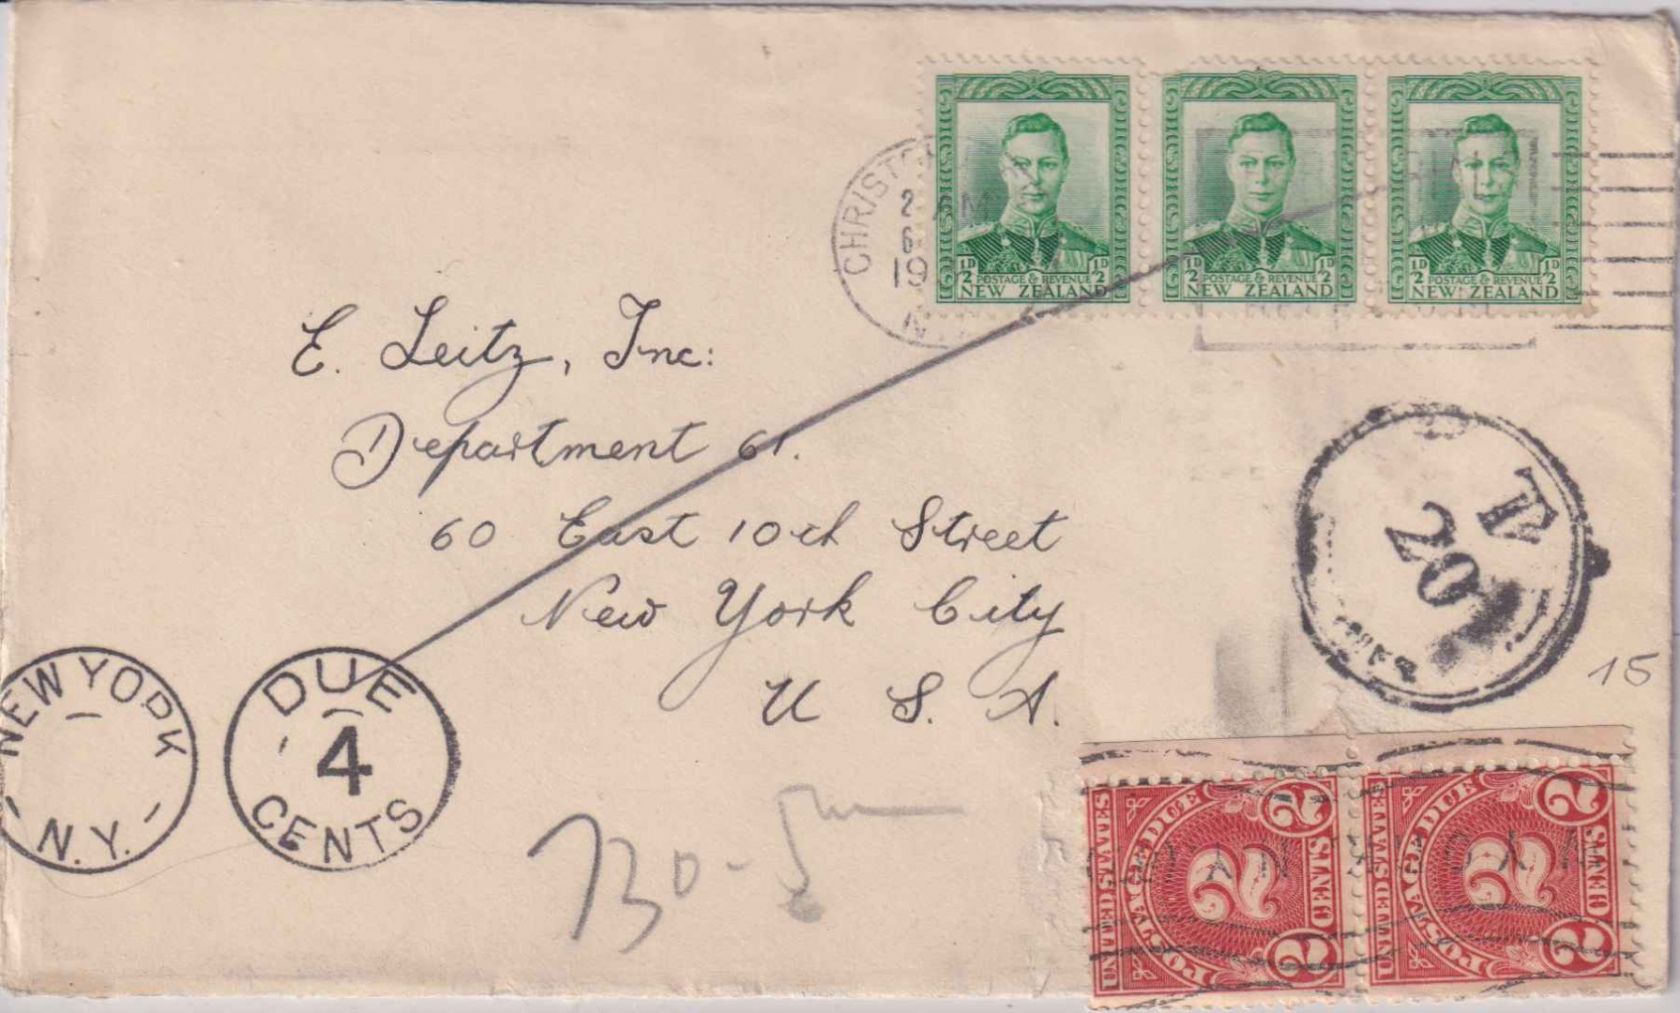 2 AM
19
½D ½D
POSTAGE & REVENUE
NEW ZEALAND
½D ½D
POSTAGE & REVENUE
NEW ZEALAND
½D ½D
POSTAGE & REVENUE
NEW ZEALAND
E. Leitz, Inc:
Department 61.
60 East 10th Street
New York City
U. S. A.
T
20
15
NEW YORK
N.Y.
DUE
4
CENTS
730-5
UNITED STATES
POSTAGE DUE
2
2
2
UNITED STATES
POSTAGE DUE
2
2
2